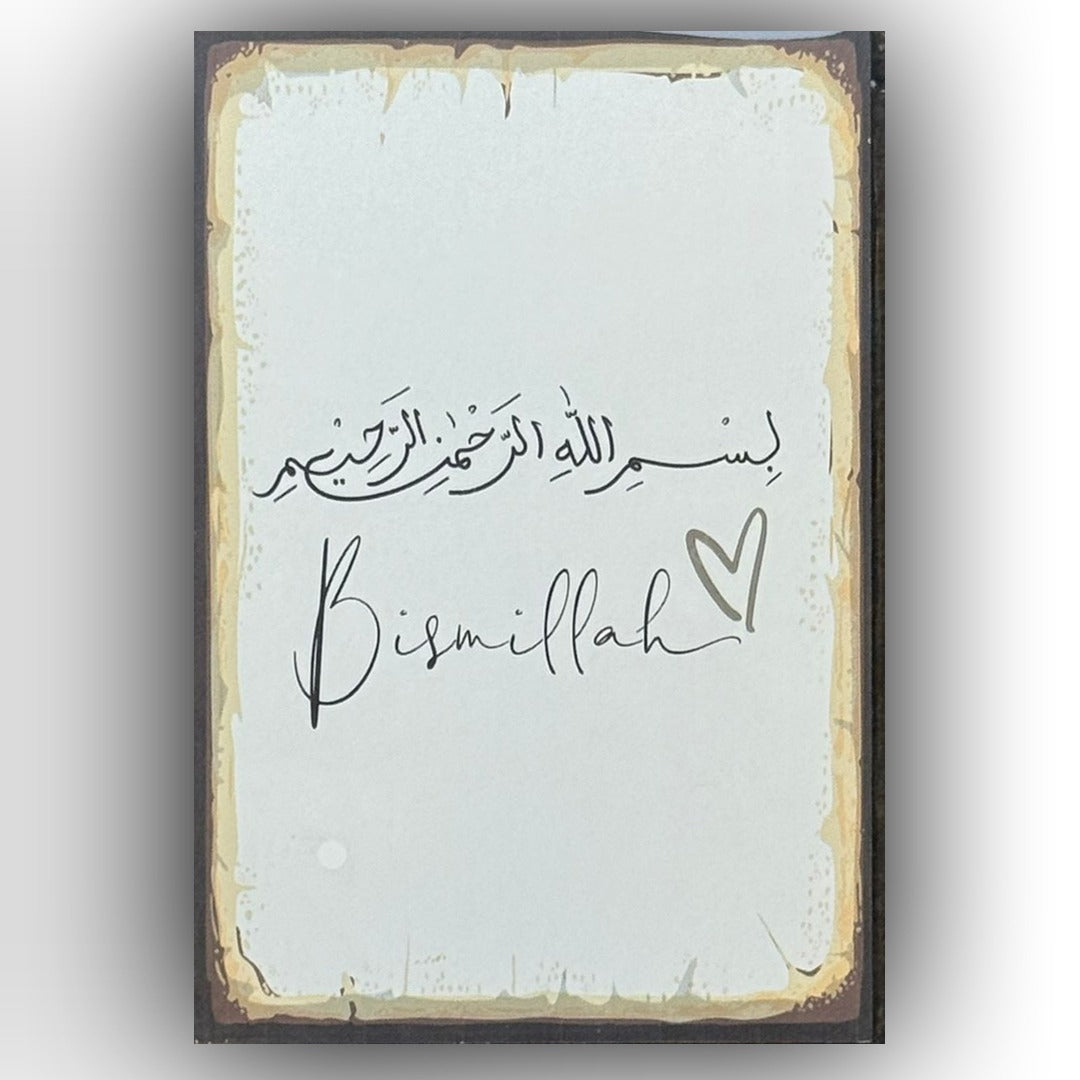 بِسْمِ اللّٰهِ الرَّحْمٰنِ الرَّحِيْمِ
Bismillah